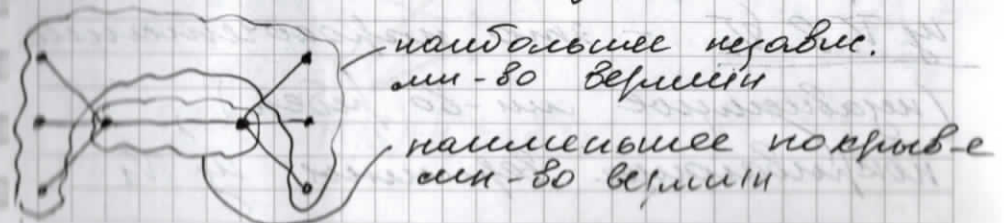 наибольшее независ.
мн-во вершин
наименьшее покрыв-е
мн-во вершин